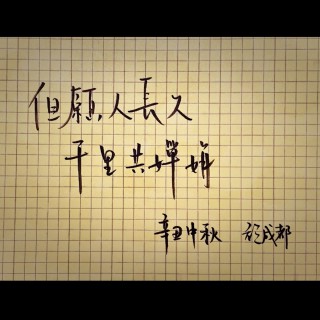 但願人長久
千里共嬋娟
辛丑中秋 於成都